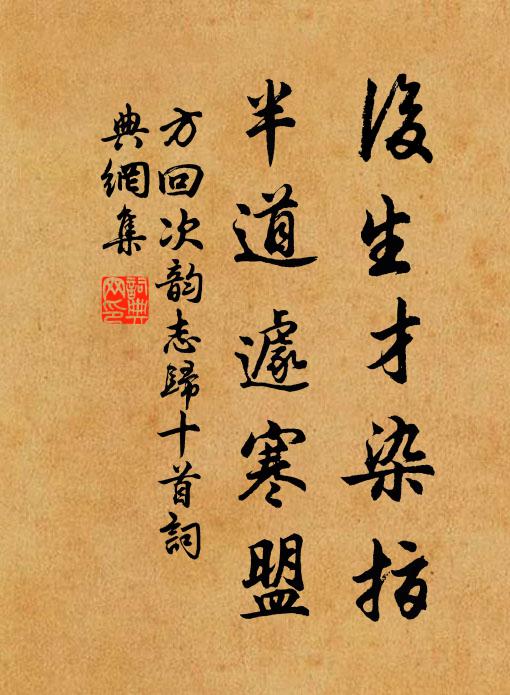 後生才染指
半道遽寒盟
方回次韵志歸十首詞
典網集
詞典
网印